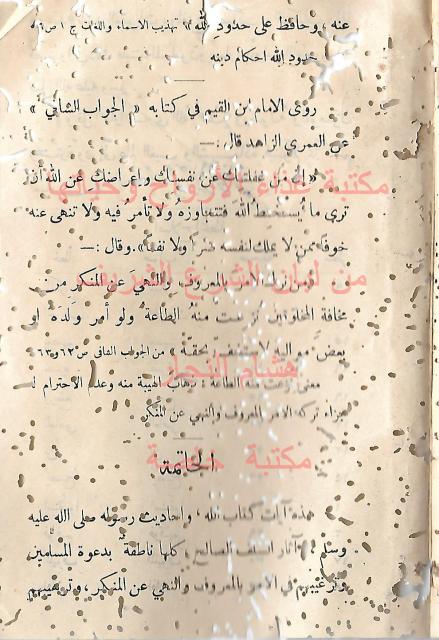 عنه ، وحافظ على حدود الله » تهذيب الاسماء واللغات ج ١ ص
حدود الله احكام دينه
روى الامام ابن القيم في كتابه « الجواب الشافي »
عن العمري الزاهد قال : —
« إن من غفلتك عن نفسك وإعراضك عن الله أن
ترى ما يُسخط الله فتتجاوزه ولا تأمر فيه ولا تنهى عنه
خوفاً ممن لا يملك لنفسه ضراً ولا نفعاً » . وقال : —
من ترك الامر بالمعروف والنهيَ عن المنكر من
مخافة المخلوقين نزعت منه الطاعة ولو أمر ولده او
بعض مواليه لا ستخف بحقه » من الجواب الشافي ص ٦٢ و ٦٣
معنى نزعت منه الطاعة : ذهاب الهيبة منه وعدم الاحترام لـ
جزاء تركه الامر بالمعروف والنهي عن المنكر
الخاتمة
هذه آيات كتاب الله ، واحاديث رسوله صلى الله عليه
وسلم ، وآثار السلف الصالح ، كلها ناطقة بدعوة المسلمين
وترغيبهم في الأمر بالمعروف والنهي عن المنكر ، وترهيبهم
مكتبة غذاء الأرواح وحياتها
من لبان الشرع الشريف
هشام النجار
مكتبة خاصة